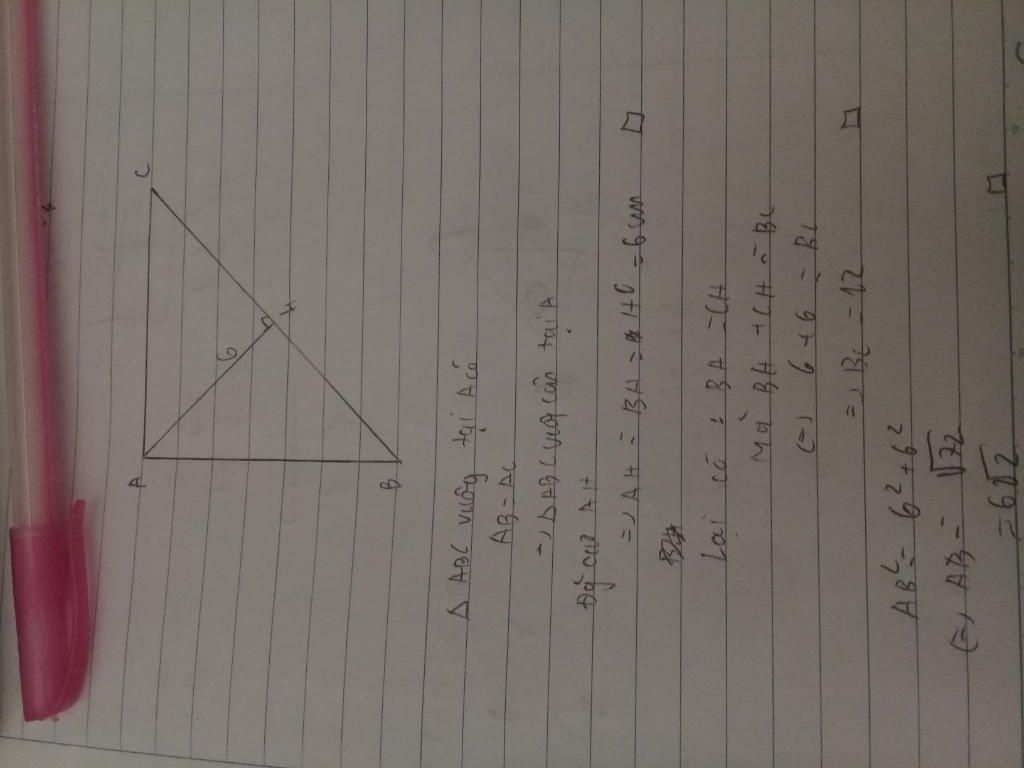 A
C
6
H
B
Δ ABC vuông tại A có
AB = AC
=> ΔABC vuông cân tại A
Độ cao AH
=> AH = BH = HC = 6cm
Lại có : BH = CH
Mà BH + CH = BC
(=) 6 + 6 = BC
=> BC = 12
AB² = 6² + 6²
(=) AB = √72
= 6√2